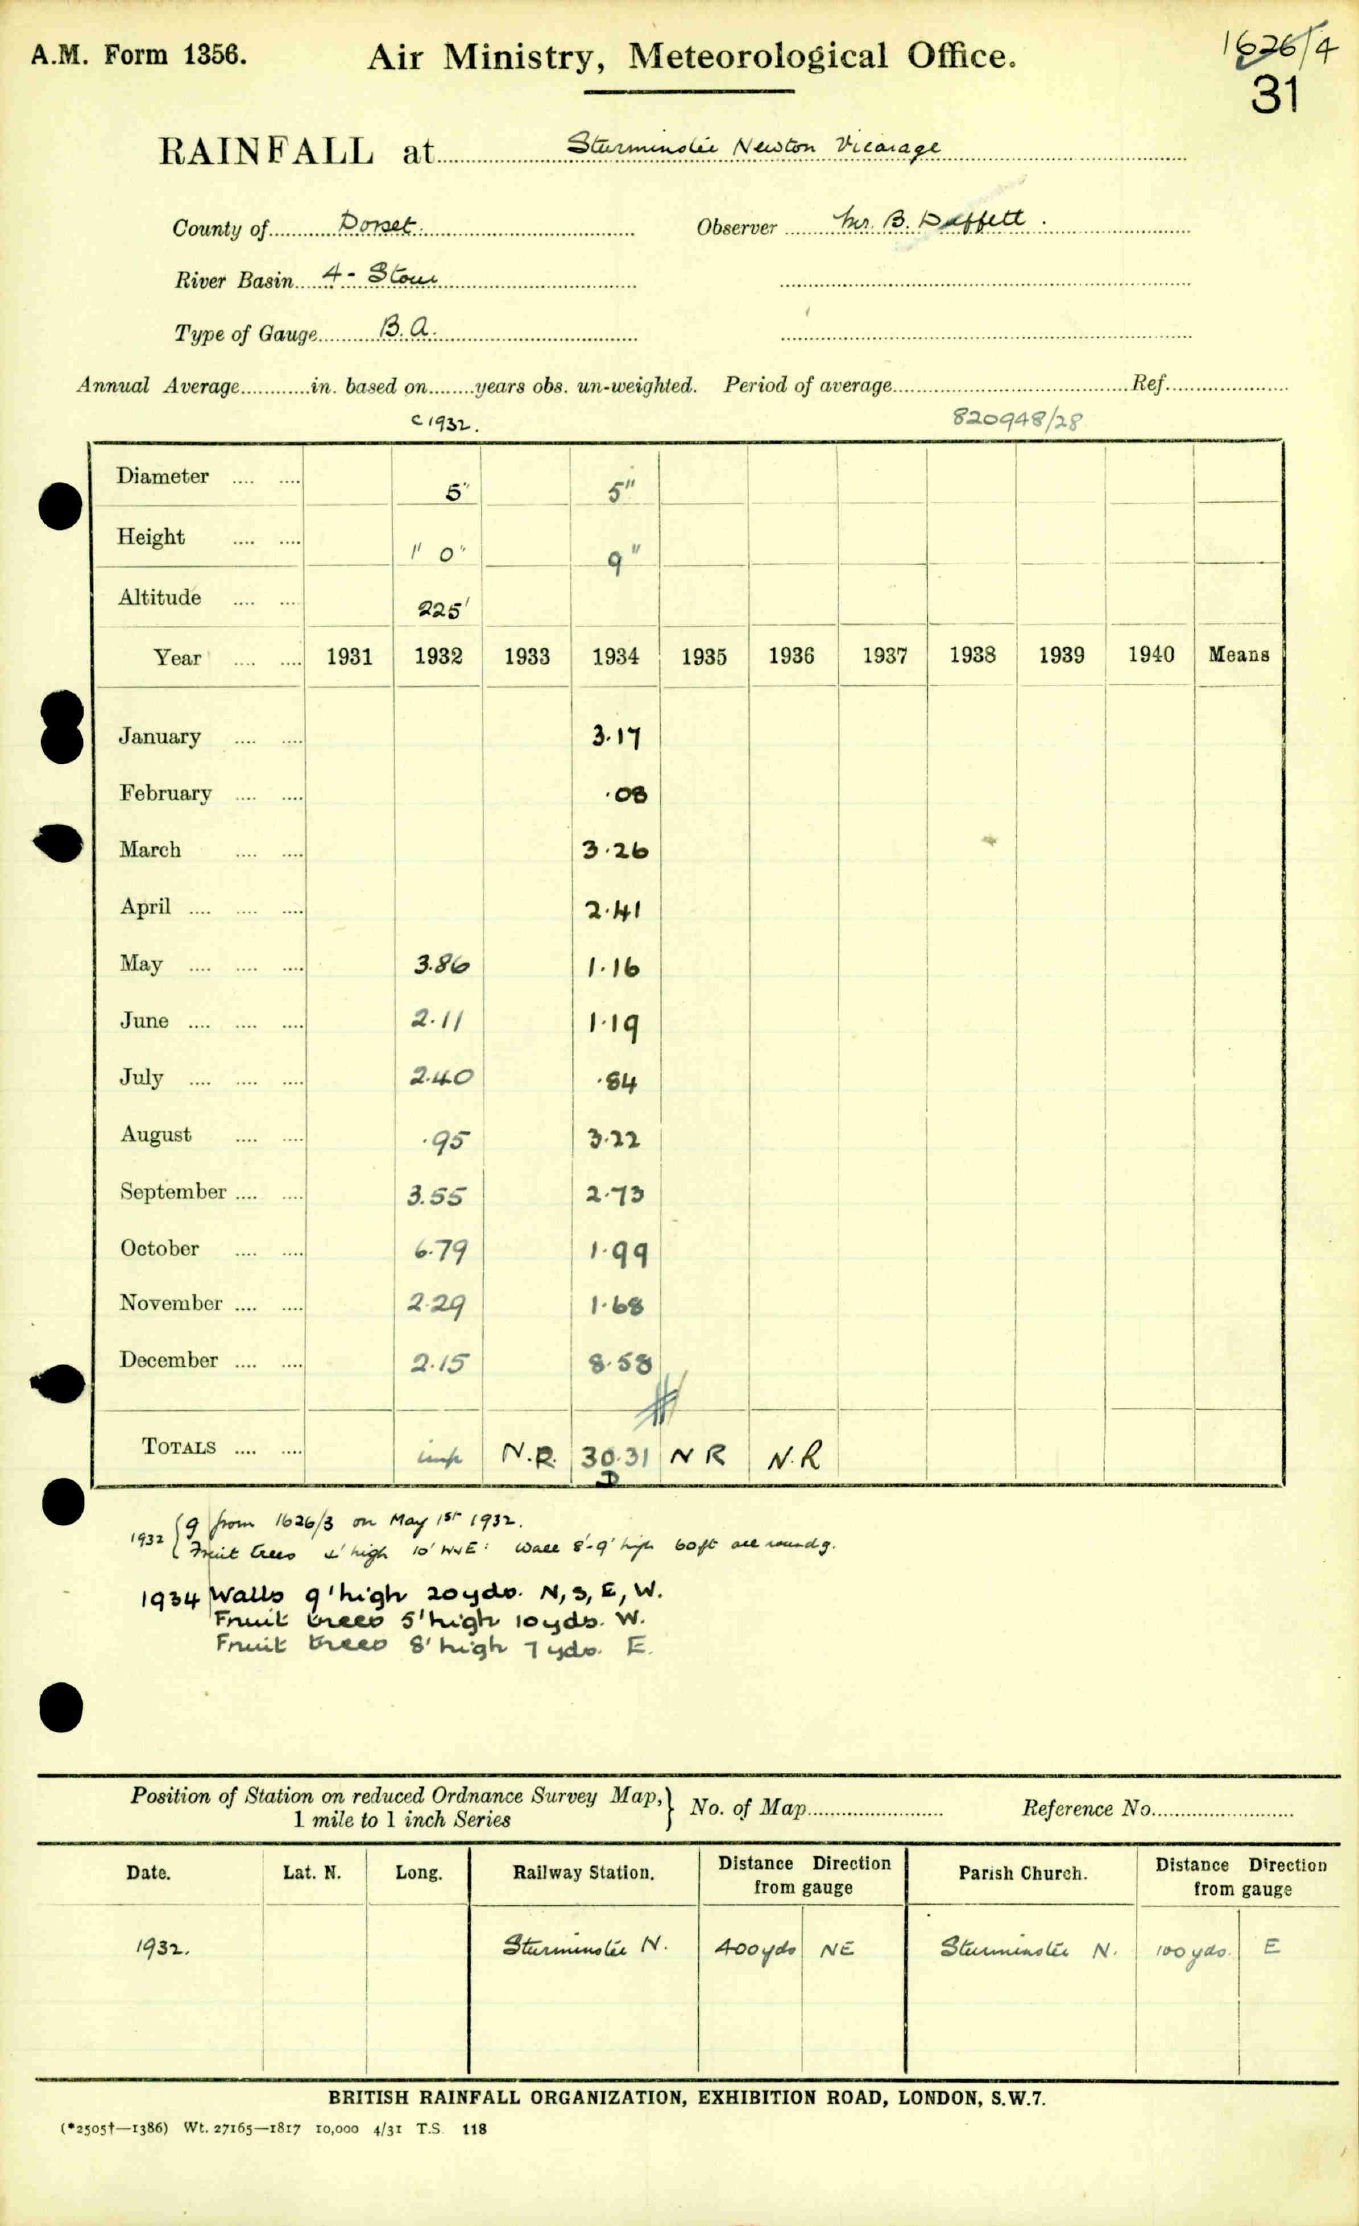 A.M. Form 1356. Air Ministry, Meteorological Office. 1626/4
31
RAINFALL at Sturminster Newton Vicarage
County of Dorset. Observer Mr. B. Deffett.
River Basin 4 - Stour
Type of Gauge B.A.
Annual Average in. based on years obs. un-weighted. Period of average Ref.
c 1932. 820948/28
Diameter 5" 5"
Height 1' 0" 9"
Altitude 225'
Year 1931 1932 1933 1934 1935 1936 1937 1938 1939 1940 Means
January 3.17
February .08
March 3.26
April 2.41
May 3.86 1.16
June 2.11 1.19
July 2.40 .84
August .95 3.22
September 3.55 2.73
October 6.79 1.99
November 2.29 1.68
December 2.15 8.58
TOTALS imp N.R. 30.31 N R N.R
D
1932 { g from 1626/3 on May 1st 1932.
Fruit trees 4' high 10' NNE: Wall 8'-9' high 60ft all round g.
1934 Walls 9' high 20yds. N, S, E, W.
Fruit trees 5' high 10yds. W.
Fruit trees 8' high 7yds. E.
Position of Station on reduced Ordnance Survey Map, 1 mile to 1 inch Series } No. of Map Reference No.
Date. Lat. N. Long. Railway Station. Distance Direction from gauge Parish Church. Distance Direction from gauge
1932. Sturminster N. 400yds NE Sturminster N. 100yds. E
BRITISH RAINFALL ORGANIZATION, EXHIBITION ROAD, LONDON, S.W.7.
(*2505†—1386) Wt. 27165—1817 10,000 4/31 T.S. 118